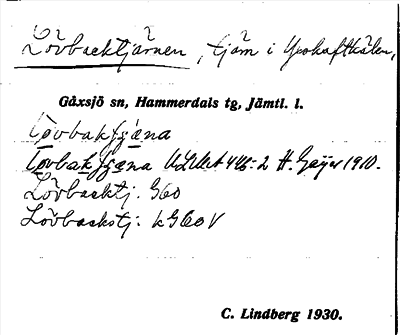 Lövbacktjärnen, tjärn i Yxskaftkälen,
Gåxsjö sn, Hammerdals tg, Jämtl. l.
Lövbakſɟäna
Lövbakſɟäna ULMA 446:2 H. Geijer 1910.
Lövbacktj. G60
Lövbackstj: kG60V
C. Lindberg 1930.